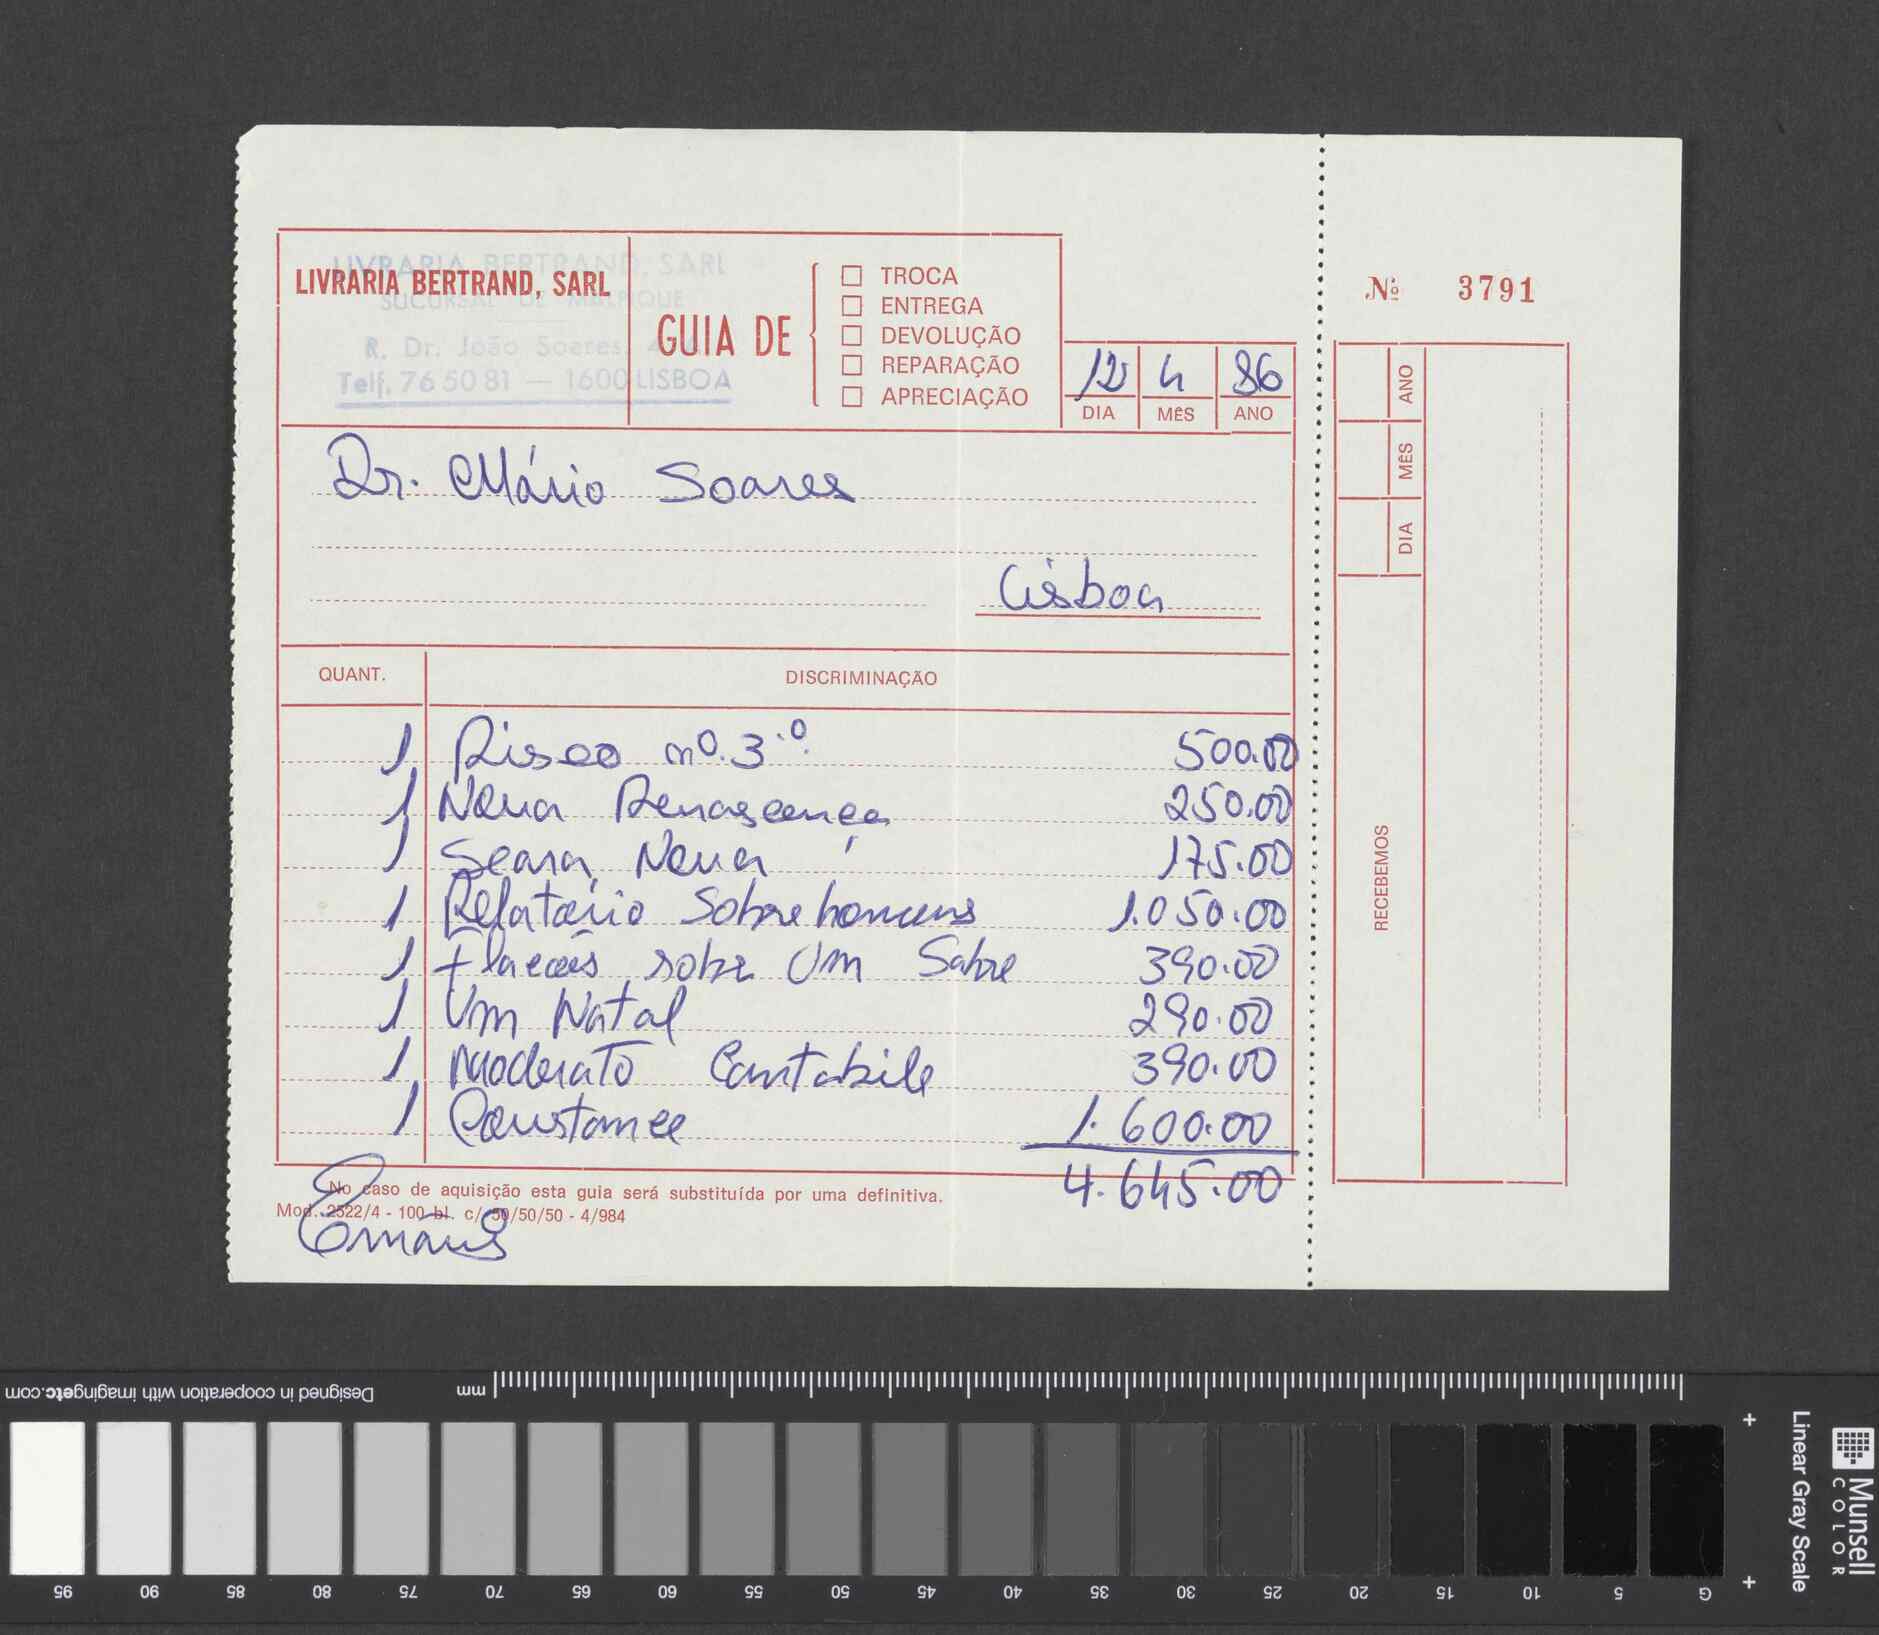 LIVRARIA BERTRAND, SARL
SUCURSAL DE MALPIQUE
R. Dr. João Soares, 4
Telf. 76 50 81 — 1600 LISBOA
LIVRARIA BERTRAND, SARL
GUIA DE
TROCA
ENTREGA
DEVOLUÇÃO
REPARAÇÃO
APRECIAÇÃO
12 4 86
DIA MÊS ANO
Nº 3791
Dr. Mário Soares
Lisboa
QUANT. DISCRIMINAÇÃO
1 Risco nº. 3.º 500.00
1 Nova Renascença 250.00
1 Seara Nova 175.00
1 Relatório Sobre homens 1.050.00
1 sobre Um Sabre 390.00
1 Um Natal 290.00
1 Moderato Cantabile 390.00
1 Constance 1.600.00
4.645.00
No caso de aquisição esta guia será substituída por uma definitiva.
Mod. 2522/4 - 100 bl. c/ 50/50/50 - 4/984
ANO
MÊS
DIA
RECEBEMOS
Designed in cooperation with imagingetc.com
mm
95 90 85 80 75 70 65 60 55 50 45 40 35 30 25 20 15 10 5 G
Linear Gray Scale
Munsell
COLOR